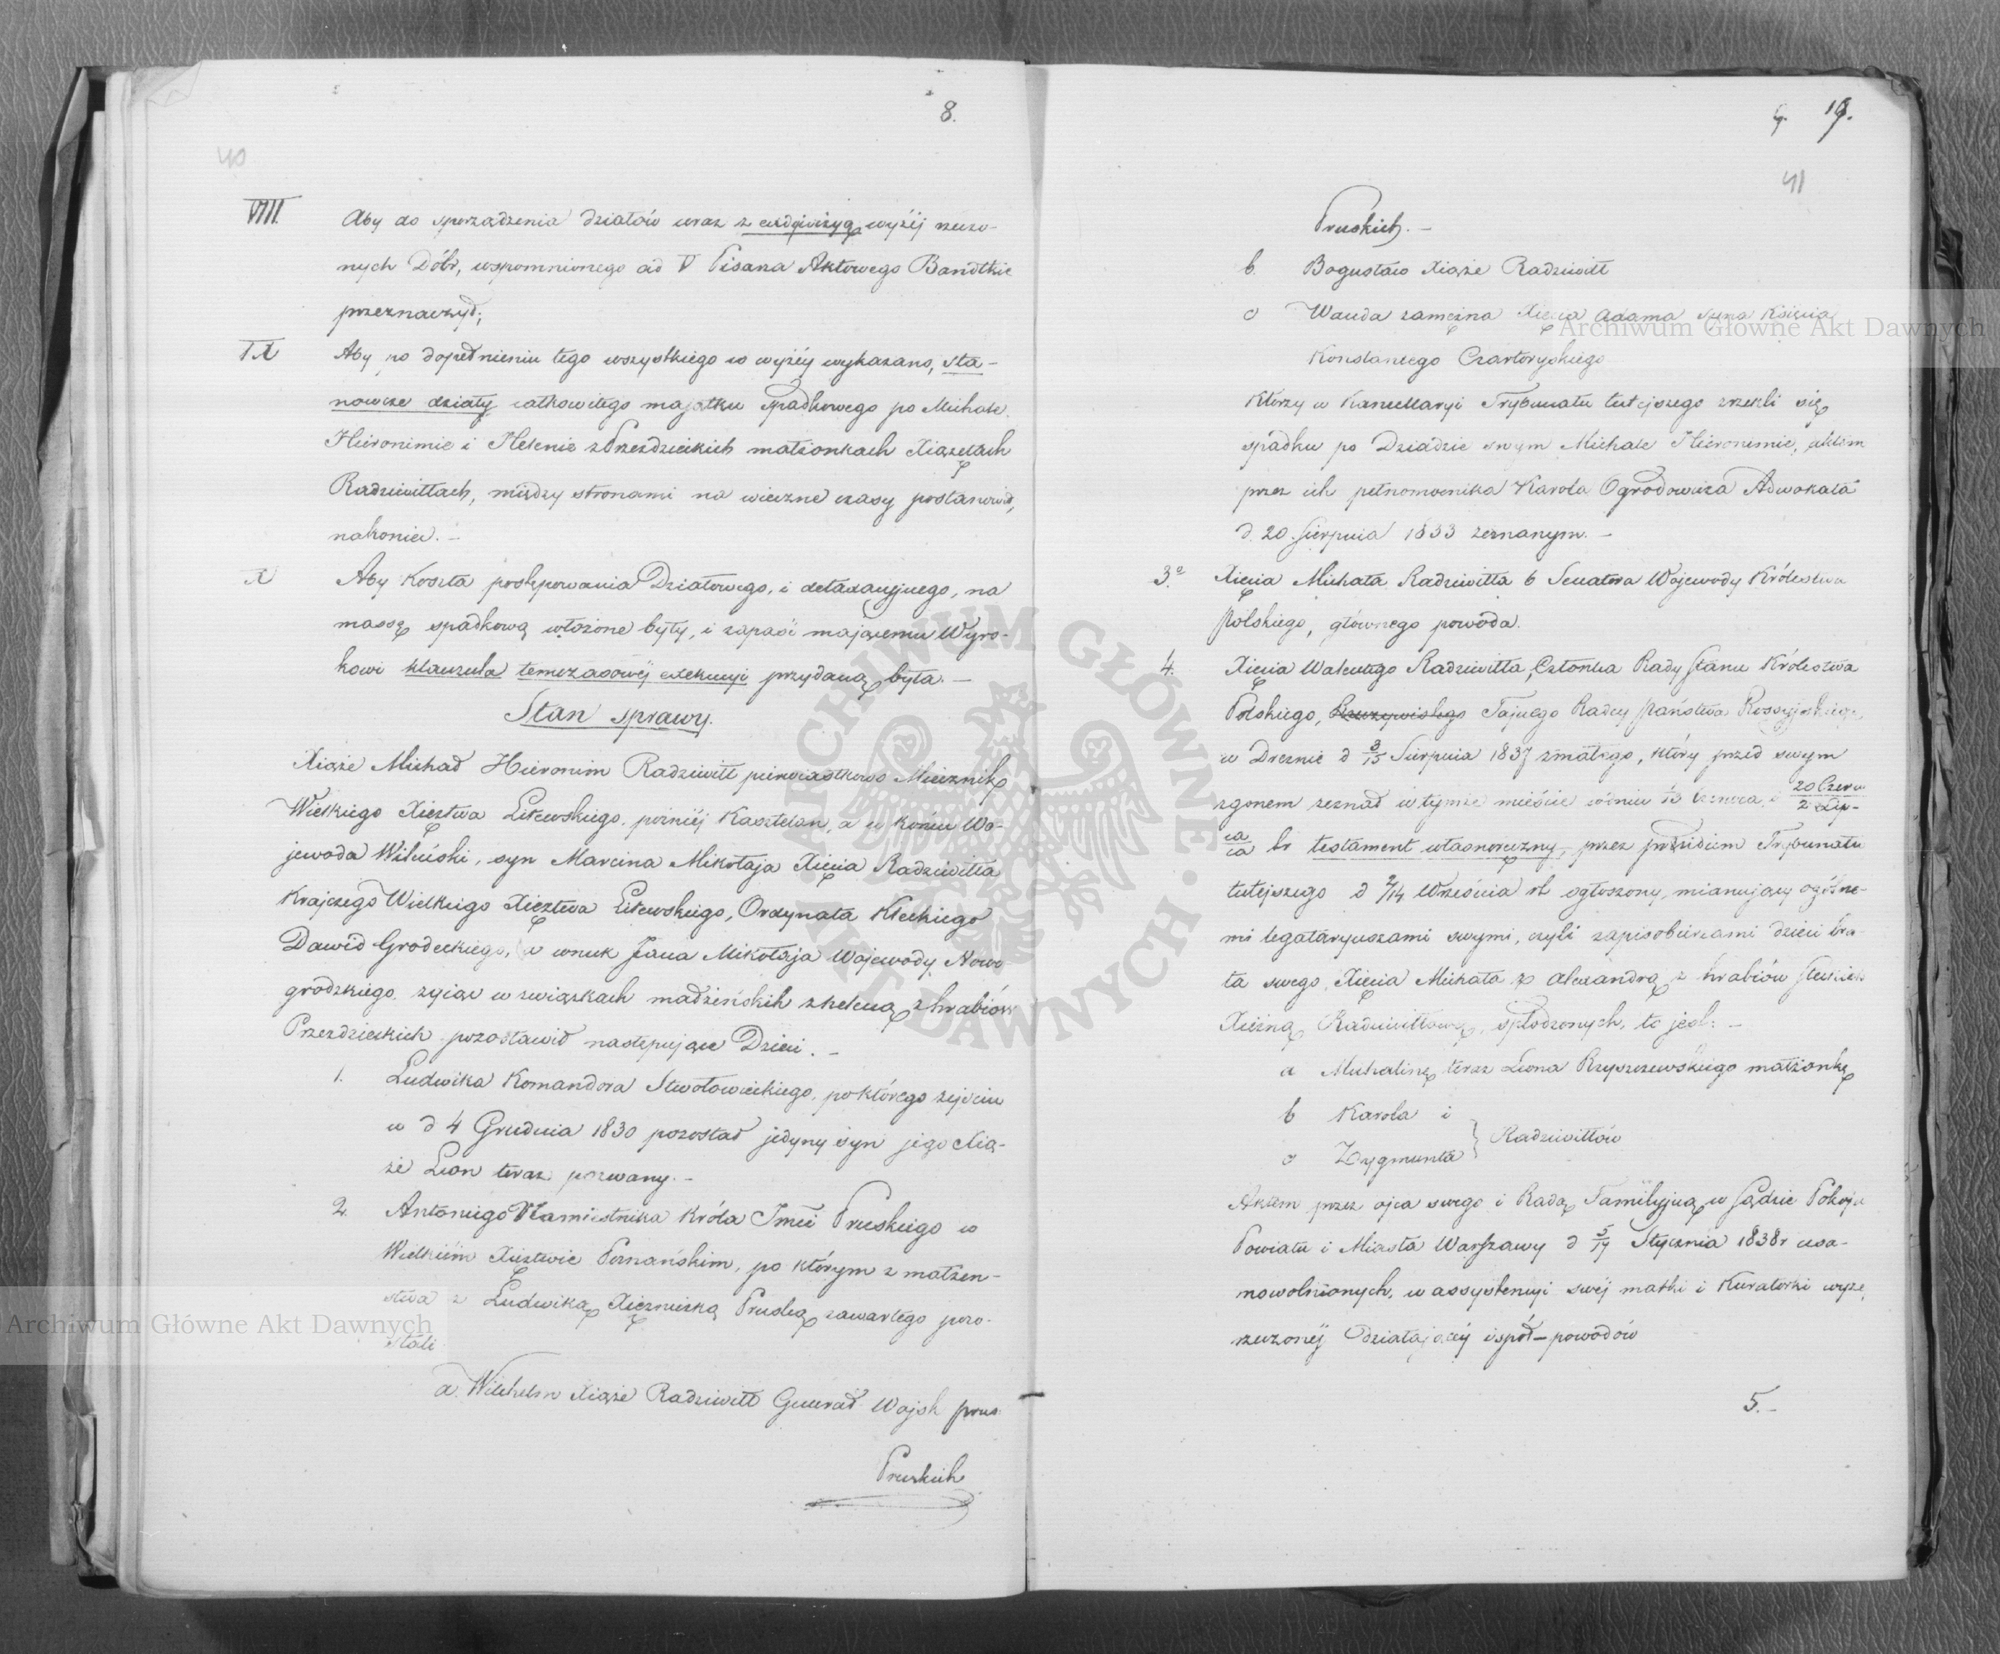 8.
40
VIII. Aby do sporządzenia działów wraz z wyżej rzeczo-
nych Dóbr, wspomnionego ad V Pisarza Aktowego Bandtkie
przeznaczyć;
IX Aby po dopełnieniu tego wszystkiego co wyżéy wykazano, sta-
nowcze działy całkowitego majątku spadkowego po Michale
Hieronimie i Helenie z Przezdzieckich małżonkach Xiążętach
Radziwiłłach, między stronami na wieczne czasy postanowić,
nakoniec. –
X Aby Koszta postępowania Działowego, i detaxacyjnego, na
massę spadkową włożone były, i zapaść mającemu Wyro-
kowi klauzula temczasowéj exekucyi przydaną była. –
Stan sprawy.
Xiąże Michał Hieronim Radziwiłł pierwiastkowo Miecznik
Wielkiego Xięztwa Litewskiego, poźniéj Kasztelan, a w końcu Wo-
jewoda Wileński, syn Marcina Mikołaja Xięcia Radziwiłła
Krajczego Wielkiego Xięztwa Litewskiego, Ordynata Kleckiego
Dawid Grodeckiego, a wnuk Jana Mikołaja Wojewody Nowo-
grodzkiego, żyiąc w związkach madżeńskih z Heleną z hrabiów
Przezdzieckich pozostawił następujące Dzieci. –
1. Ludwika Komandora Stwołowickiego, po którego zejściu
w d 4 Grudnia 1830 pozostał jedyny syn jego Xią-
że Leon teraz pozwany. –
2. Antoniego Namiestnika Króla Jmći Pruskiego w
Wielkiém Xięztwie Poznańskim, po którym z małżeń-
stwa z Ludwiką Xiężniczką Pruską zawartego pozo-
stali
a. Wilhelm Xiąże Radziwiłł Generał Wojsk prus
Pruskich
9. 19.
41
Pruskich. –
b. Bogusław Xiąże Radziwiłł
c Wanda zamężna Xięcia Adama syna Księcia
Konstantego Czartoryskiego
Którzy w Kancellaryi Trybunału tutejszego zrzekli się
spadku po Dziadzie swym Michale Hieronimie, aktem
przez ich pełnomocnika Karola Ogrodowicza Adwokata
d. 20. Sierpnia 1833 zeznanym. –
3.e Xięcia Michała Radziwiłła b Senatora Wojewody Królestwa
Polskiego, głównego powoda.
4. Xięcia Walentego Radziwiłła, Członka Rady Stanu Królestwa
Polskiego, Rzeczywistego Tajnego Radcy Państwa Rossyjskiego
w Dreznie d 3/15 Sierpnia 1837 zmałego, który przed swym
zgonem zeznał w tymże mieście w dniu 20 Czerw
2 Lip-
ca
ca br testament własnoręczny, przez prezidium Trybunału
tutejszego d 2/14 Września rb ogłoszony, mianujący ogólne-
mi legataryuszami swymi, czyli zapisobiercami dzieci bra-
ta swego, Xięcia Michała z Alexandrą z hrabiów Steckich
Xiężną Radziwiłłową, spłodzonych, to jest: –
a Michalinę teraz Leona Rzyszczewskiego małżonkę
b Karola i
c Zygmunta } Radziwiłłów
Aktem przez ojca swego i Radę Familyjną w Sądzie Pokoju
Powiatu i Miasta Warszawy d 5/17 Stycznia 1838 r usa-
mowolnionych, w assystencyi swéj matki i Kuratorki wyże
rzeczonéj działającéj współ-powodów
5. –
Archiwum Główne Akt Dawnych
Archiwum Główne Akt Dawnych
ARCHIWUM GŁÓWNE AKT DAWNYCH